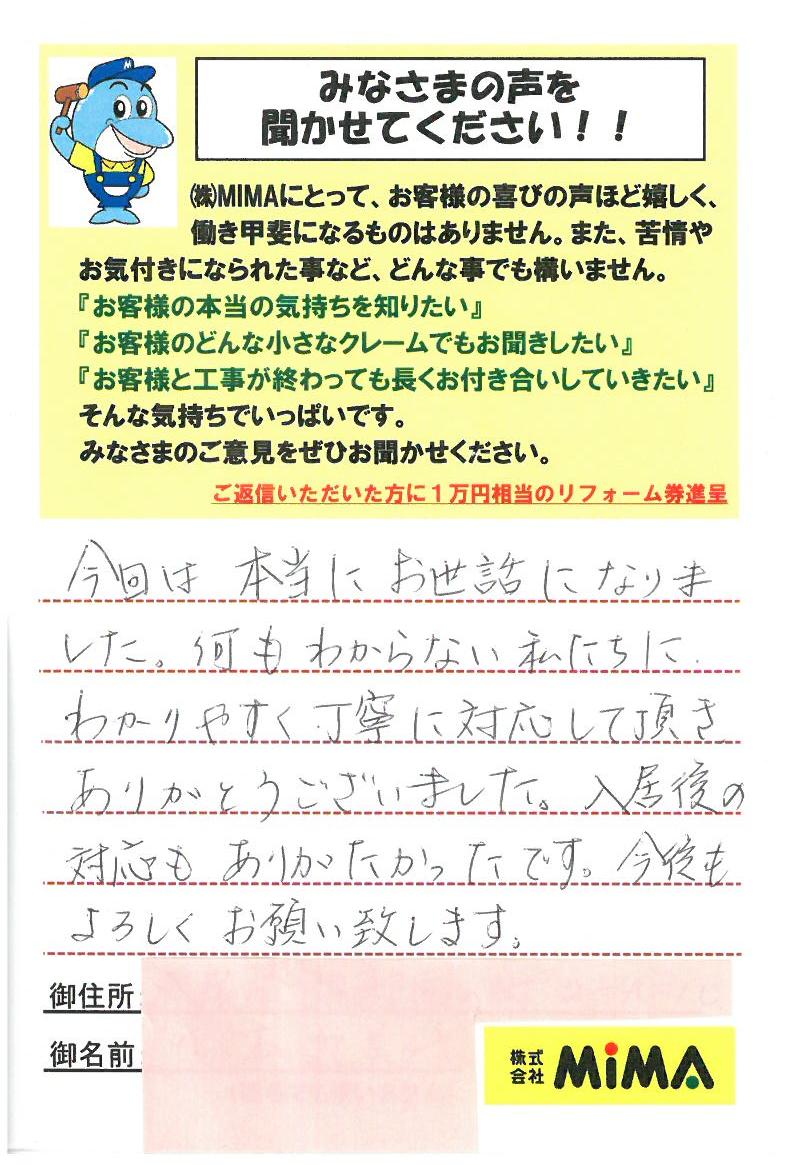 みなさまの声を
聞かせてください！！
㈱MIMAにとって、お客様の喜びの声ほど嬉しく、
働き甲斐になるものはありません。また、苦情や
お気付きになられた事など、どんな事でも構いません。
『お客様の本当の気持ちを知りたい』
『お客様のどんな小さなクレームでもお聞きしたい』
『お客様と工事が終わっても長くお付き合いしていきたい』
そんな気持ちでいっぱいです。
みなさまのご意見をぜひお聞かせください。
ご返信いただいた方に１万円相当のリフォーム券進呈
今回は 本当に お世話 になりま
した。何も わからない 私たちに
わかりやすく 丁寧に対応して頂き
ありがとうございました。入居後の
対応も ありがたかったです。今後も
よろしく お願い致します。
御住所:
御名前:
株式会社 MiMA